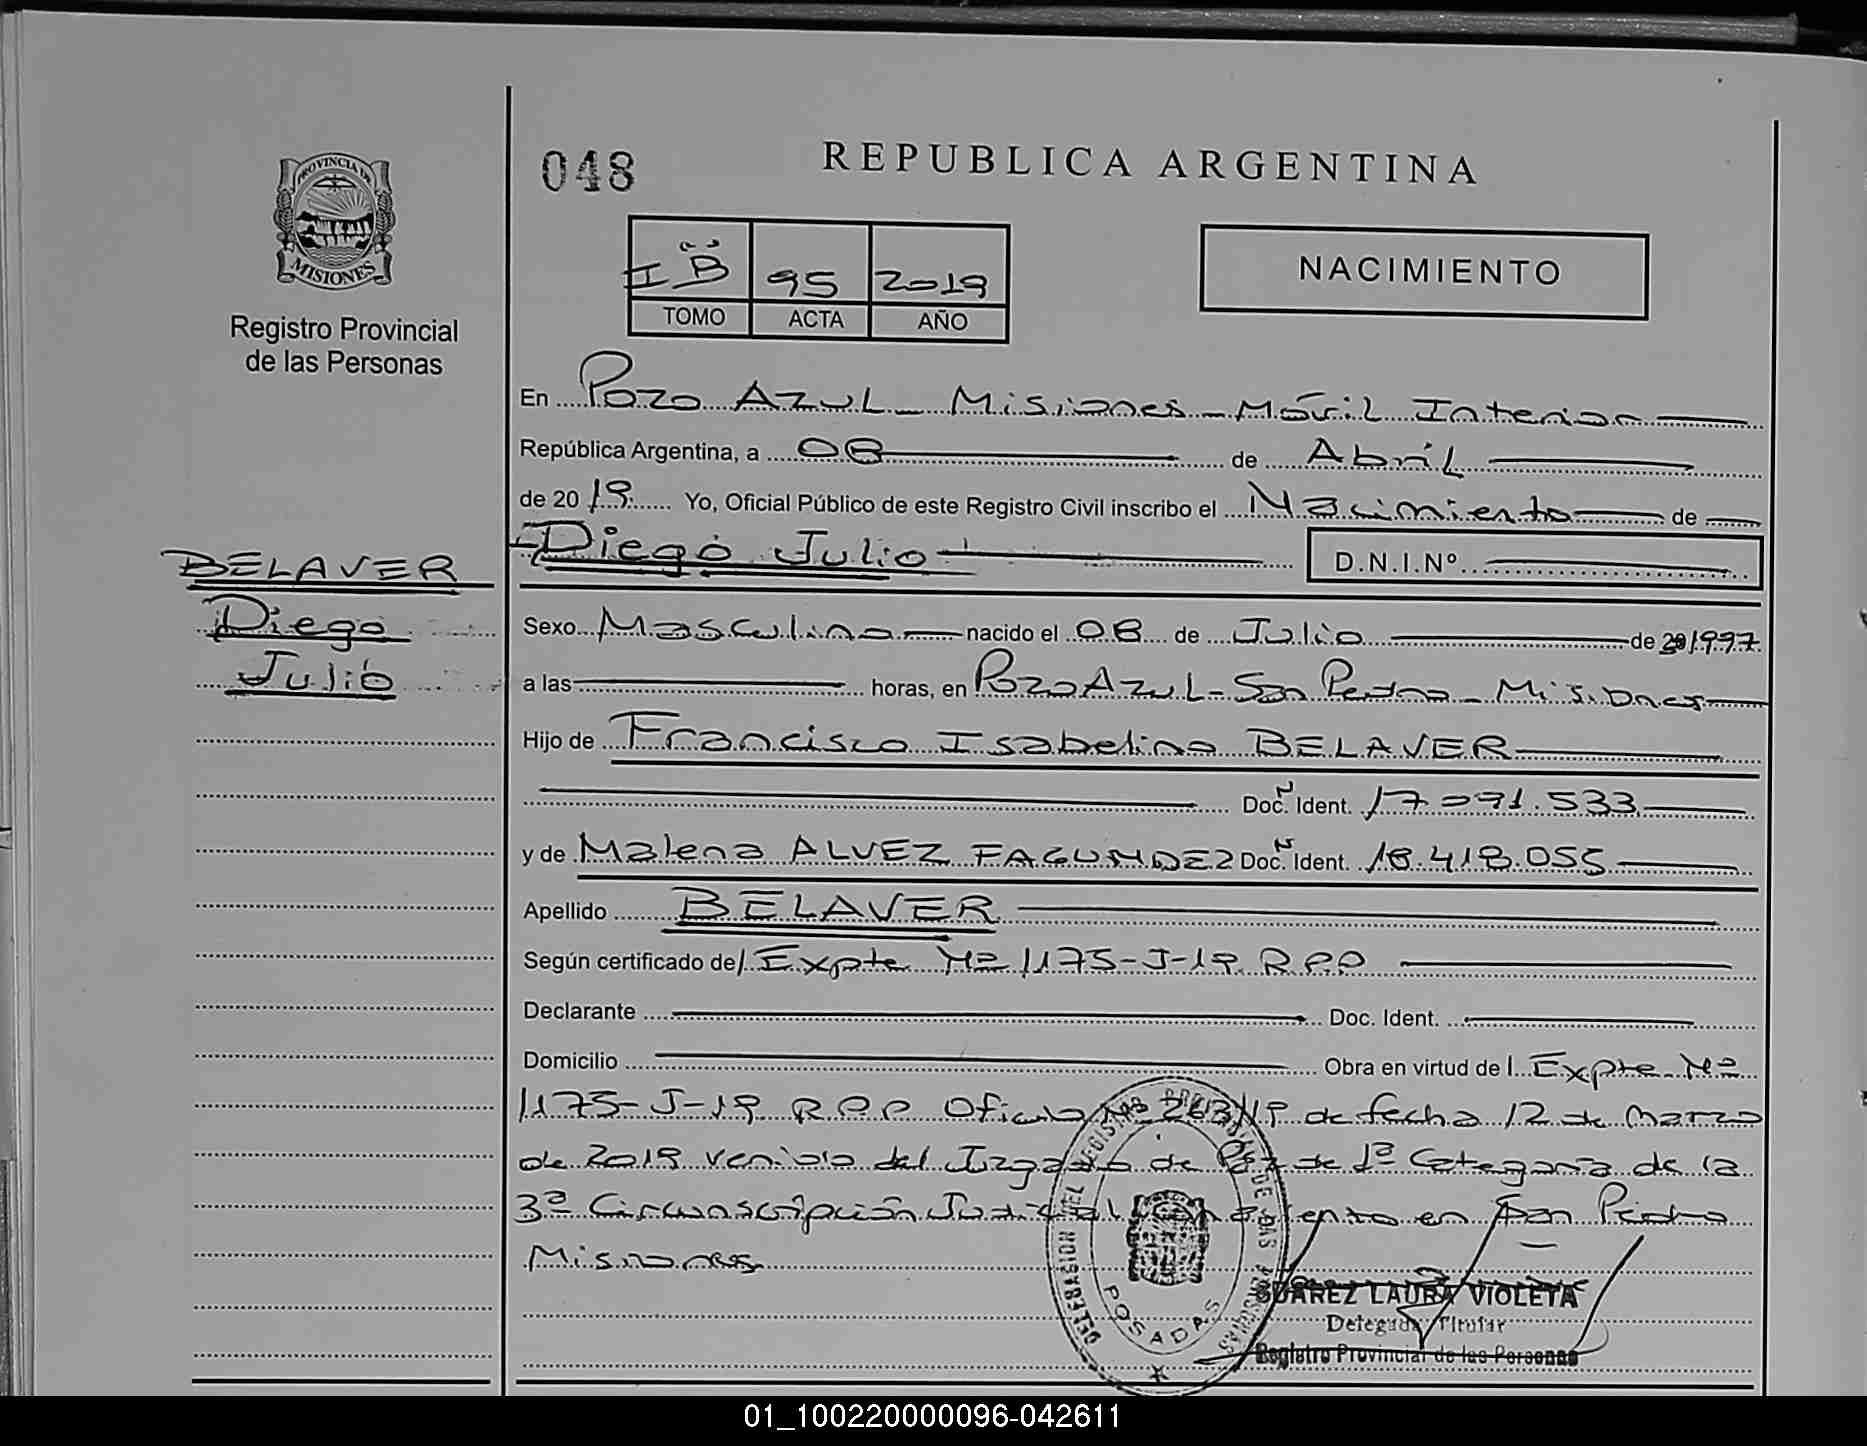 PROVINCIA DE
MISIONES
Registro Provincial
de las Personas
BELAVER
Diego
Julio
048
REPUBLICA ARGENTINA
I B 95 2019
TOMO ACTA AÑO
NACIMIENTO
En Pozo Azul - Misiones - Móvil Interior
República Argentina, a 08 de Abril
de 2019 Yo, Oficial Público de este Registro Civil inscribo el Nacimiento de
Diego Julio D.N.I.Nº
Sexo Masculino nacido el 08 de Julio de 1997
a las horas, en Pozo Azul - San Pedro - Misiones
Hijo de Francisco Isabelino BELAVER
Doc. Ident. 17.091.533
y de Malena ALVEZ FAGUNDEZ Doc. Ident. 18.418.055
Apellido BELAVER
Según certificado de/ Expte Nº 1175-J-19 RPP
Declarante Doc. Ident.
Domicilio Obra en virtud de l Expte Nº
1175-J-19 RPP Oficio Nº 263/19 de fecha 12 de Marzo
de 2019 venido del Juzgado de Paz de 1ª Categoria de la
3ª Circunscripción Judicial con asiento en San Pedro
Misiones
DELEGACION DEL REGISTRO PROVINCIAL DE LAS PERSONAS
POSADAS
SUAREZ LAURA VIOLETA
Delegada Titular
Registro Provincial de las Personas
01_100220000096-042611